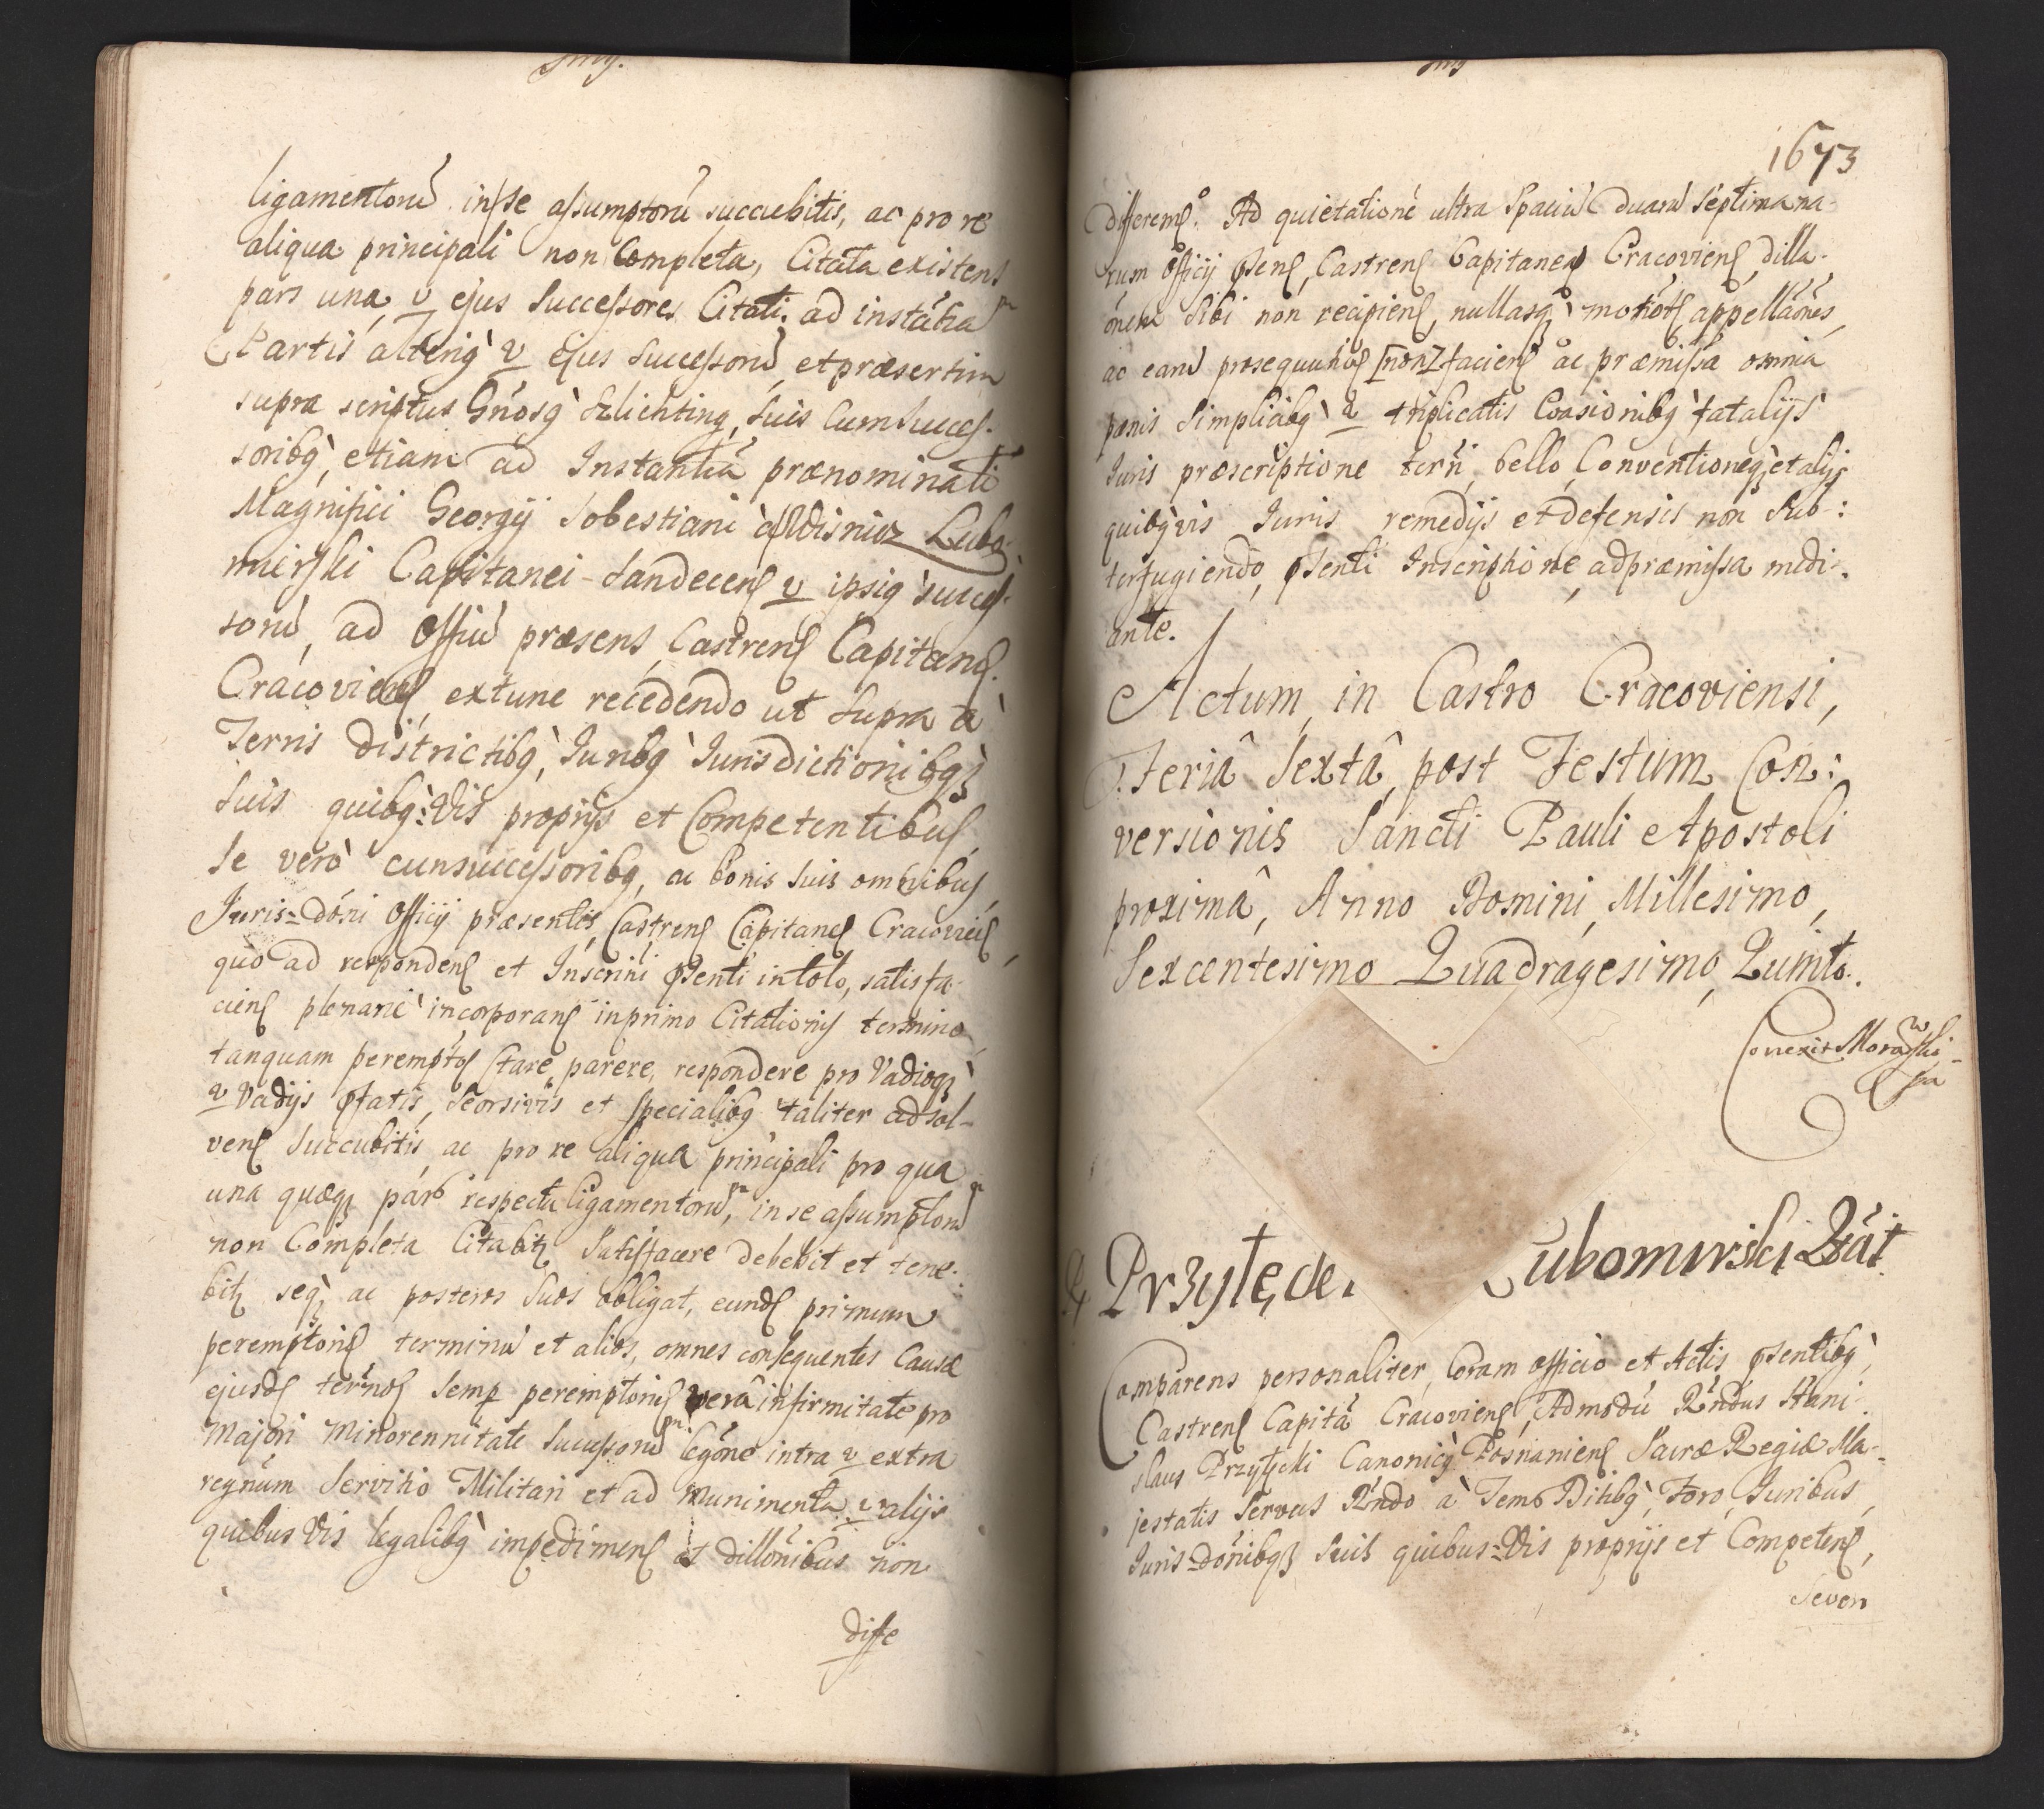 ligamentorū in se assumptorū succubitis, ac pro re
aliqua principali non Completa, Citata existens
pars una, v ejus Successores Citati. ad instātia
Partis alteriq v ejus Successorū et præsertim
supra scriptus Gnosq Szlichting, Suis Cum Succes-
soribq, etiam ad Instantiā prænominati
Magnifici Georgij Sobestiani à Wisnicz Lubo-
mirski Capitanei Sandecens v ipsiq succes-
sorū, ad Offiū præsens Castrens Capitane.
Cracoviens extunc recedendo ut Supra à
Terris districtibq, Juribq Jurisdictionibqz
Suis quibq: Vis proprijs et Competentibus,
Se verò cunsuccessoribq, ac bonis Suis omnibus,
Juris=doni Officij præsentis, Castrens Capitane Cracoviens
quò ad respondens et Inscrini pSenti in toto, satisfa-
ciens plenariè incorporans in primo Citationis termino
tanquam peremptos Stare, parere, respondere pro Vadioqz
v Vadijs pfatis, Seorsivis et specialibq taliter adsol-
vens Succubitis, ac pro re aliqua principali pro qua
una quæqz pars respectu ligamentorū, in se assumptorū
non Completa Citabitz Satisfacere debebit et tene-
bitz seqz ac posteros Suos obligat, eunds primum
peremptoriū terminū et alios, omnes consequentes Causæ
ejusds ternos Semp peremptoriè verâ infirmitate pro
Majori Minorennitate Successorū legōne intra v extra
regnum Servitio Militari et ad munimenta v alijs
quibus Vis legalibq impedimens et dillōnibus non
diffe
1673
differens. Ad quietationē ultra Spaciū duarū Septimana-
rum Officij pSens, Castrens Capitanea Cracoviens, dilla-
onem Sibi non recipiens, nullasqz motiōes appellāones,
ac earū prosequutiōes [non] faciens ac præmissa omnia
pænis Simplicibq v triplicatis Evasionibq fatalijs
Juris præscriptione terrī, bello, Conventioneqz et alijs
quibqvis Juris remedijs et defensis non Sub:
terfugiendo, pSenti Inscriptione, ad præmissa medi-
ante.
Actum, in Castro Cracoviensi,
Feriâ Sextâ, post Festum Con:
versionis Sancti Pauli Apostoli
proximâ, Anno Domini, Millesimo,
Sexcentesimo Quadragesimo, Quinto.
Correxit Morawski
Przyłęcki Lubomirski Qtát
Comparens personaliter, Coram officio et Actis pSentibq,
Castrens Capitā Cracoviens, Admodū Rndus Stani-
slaus Przyłęcki Canonicq Posnaniens Sacræ Regiæ Ma-
jestatis Servus Rndo à Terris Ditibq, Foro, Juribus,
Juris=dōnibqz Suis quibus=Vis proprijs et Competens,
Seven